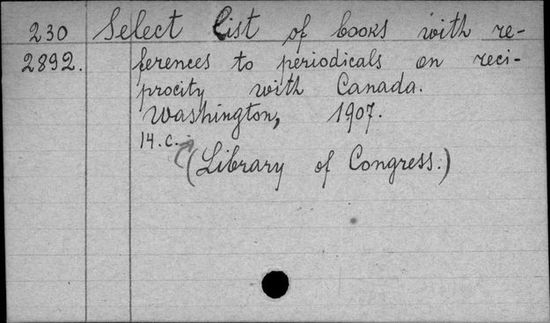 230 Select List of books with re-
2892. ferences to periodicals on reci-
procity with Canada.
Washington, 1907.
14.c.
(Library of Congress.)